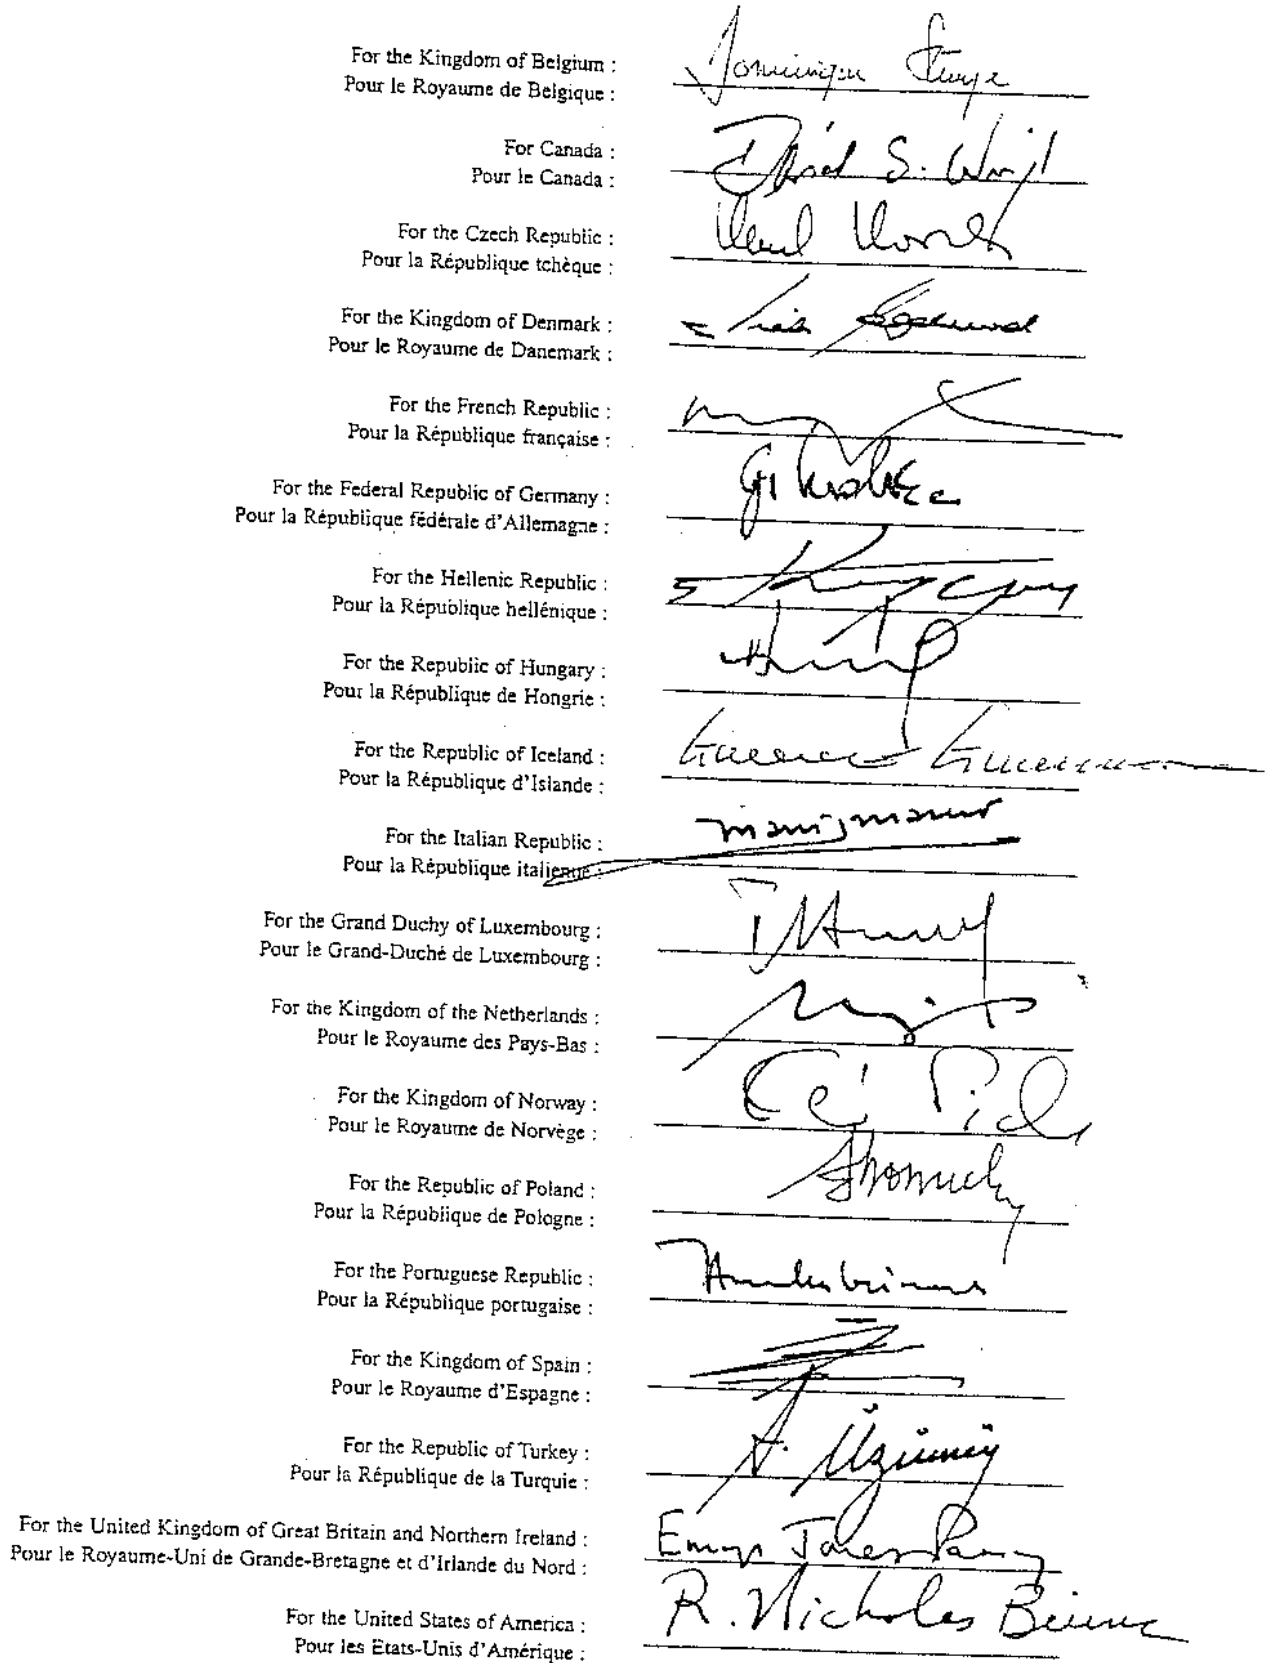 For the Kingdom of Belgium :
Pour le Royaume de Belgique :
Dominique
For Canada :
Pour le Canada :
David S. Wright
For the Czech Republic :
Pour la République tchèque :
For the Kingdom of Denmark :
Pour le Royaume de Danemark :
For the French Republic :
Pour la République française :
For the Federal Republic of Germany :
Pour la République fédérale d'Allemagne :
For the Hellenic Republic :
Pour la République hellénique :
For the Republic of Hungary :
Pour la République de Hongrie :
For the Republic of Iceland :
Pour la République d'Islande :
For the Italian Republic :
Pour la République italienne :
For the Grand Duchy of Luxembourg :
Pour le Grand-Duché de Luxembourg :
For the Kingdom of the Netherlands :
Pour le Royaume des Pays-Bas :
For the Kingdom of Norway :
Pour le Royaume de Norvège :
For the Republic of Poland :
Pour la République de Pologne :
For the Portuguese Republic :
Pour la République portugaise :
For the Kingdom of Spain :
Pour le Royaume d'Espagne :
For the Republic of Turkey :
Pour la République de la Turquie :
For the United Kingdom of Great Britain and Northern Ireland :
Pour le Royaume-Uni de Grande-Bretagne et d'Irlande du Nord :
Emyr Jones Parry
For the United States of America :
Pour les Etats-Unis d'Amérique :
R. Nicholas Burns